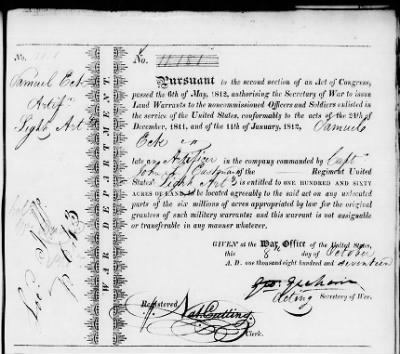 No.
Samuel Eck
Artif
Light Art
WAR DEPARTMENT.
No. 11,181
Pursuant to the second section of an Act of Congress,
passed the 6th of May, 1812, authorising the Secretary of War to issue
Land Warrants to the noncommissioned Officers and Soldiers enlisted in
the service of the United States, conformably to the acts of the 24th of
December, 1811, and the 11th of January, 1812, Samuel
Eck
late an Artificer in the company commanded by Capt
Regiment United
States' Light Art is entitled to ONE HUNDRED AND SIXTY
ACRES OF LAND to be located agreeably to the said act on any unlocated
parts of the six millions of acres appropriated by law for the original
grantees of such military warrants; and this warrant is not assignable
or transferable in any manner whatever.
GIVEN at the War Office of the United States,
this 8th day of October
A. D. one thousand eight hundred and seventeen
Geo: Graham
Acting Secretary of War.
Registered
Nat. Cutting,
Clerk.